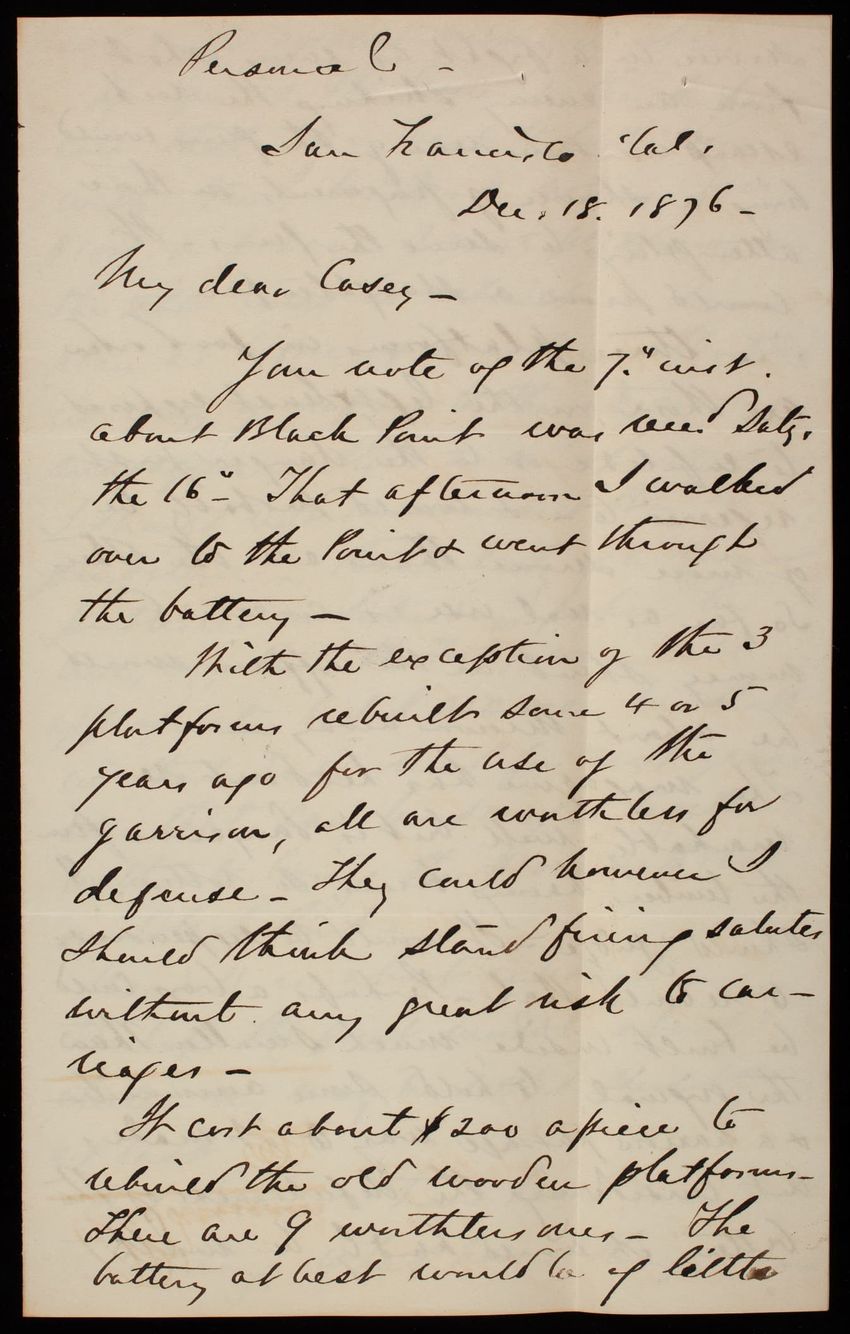 Personal -
San Francisco Cal.
Dec. 18. 1876 -
My dear Casey -
Your note of the 7." inst.
about Black Point was recd Saty.
the 16" - That afternoon I walked
over to the Point & went through
the battery -
With the exception of the 3
platforms rebuilt some 4 or 5
years ago for the use of the
garrison, all are worthless for
defense - They could however I
should think stand firing salutes
without any great risk to car-
riages -
It cost about $200 apiece to
rebuild the old wooden platforms -
There are 9 worthless ones - The
battery at best would be of little